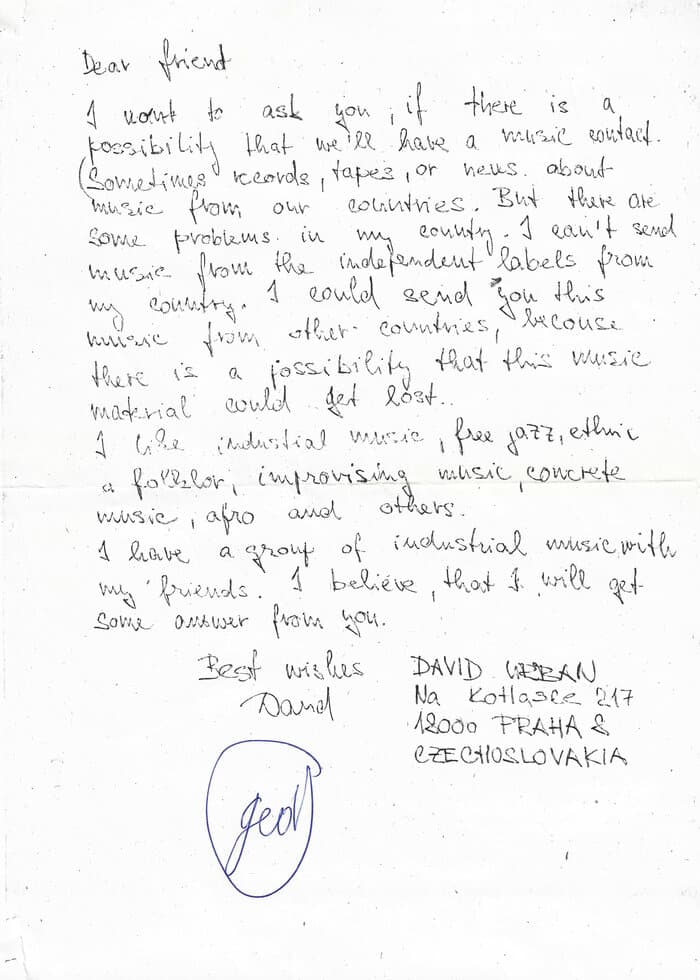 Dear friend
I want to ask you, if there is a
possibility that we'll have a music contact.
(Sometimes records, tapes, or news about
music from our countries. But there are
some problems in my country. I can't send
music from the independent labels from
my country. I could send you this
music from other countries, because
there is a possibility that this music
material could get lost..
I like industial music, free jazz, ethnic
a folklor, improvising music, concrete
music, afro and others.
I have a group of industrial music with
my friends. I believe, that I will get
some answer from you.
Best wishes
David
DAVID URBAN
Na Kotlasce 217
18000 PRAHA 8
CZECHOSLOVAKIA